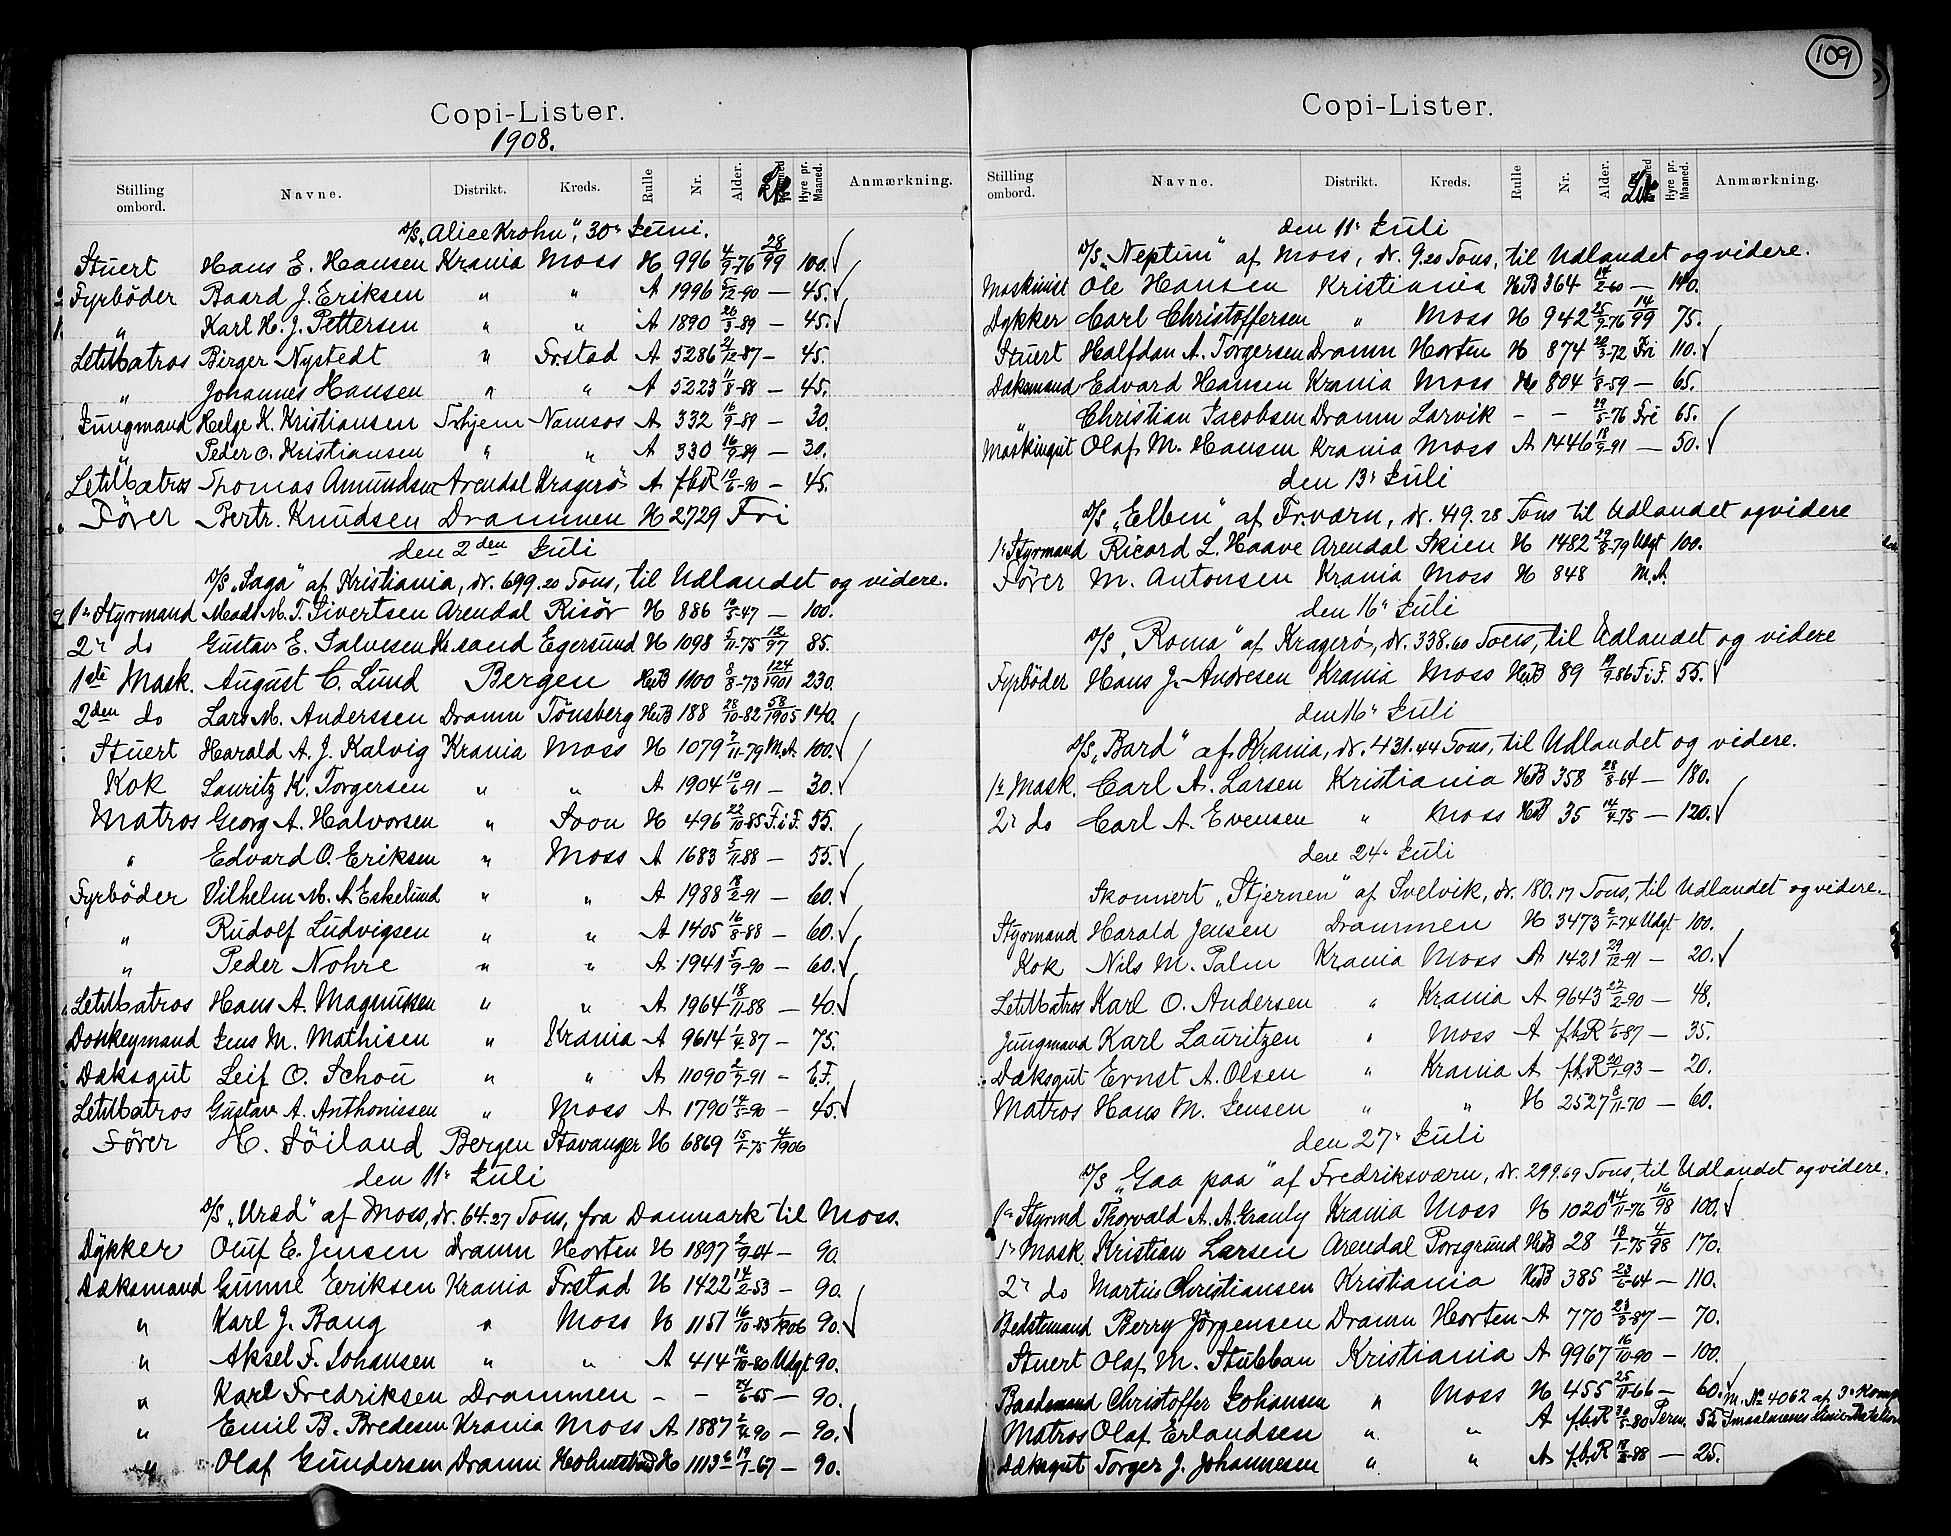 Copi-Lister.
1908.
Stilling ombord. Navne. Distrikt. Kreds. Rulle Nr. Alder. Hyre pr. Maaned. Anmærkning.
D/S „Alice Krohn“, 30' Juni.
Stuert Hans E. Hansen Krania Moss H 996 4/9-76 28/99 100.
Fyrbøder Baard J. Eriksen " " A 1996 5/12-90 — 45.
" Karl H. J. Pettersen " " A 1890 26/3-89 — 45.
LetMatros Birger Nystedt " Frstad A 5286 21/12-87 — 45.
" Johannes Hansen " " A 5223 11/8-88 — 45.
Jungmand Helge K. Kristiansen Trhjem Namsos A 332 16/9-89 — 30.
" Peder O. Kristiansen " " A 330 16/9-89 — 30.
LetMatros Thomas Amundsen Arendal Kragerø A f.b.R 10/6-90 — 45.
Fører Bertr. Knudsen Drammen H 2729 Fri
den 2den Juli
D/S „Saga“ af Kristiania, dr. 699.20 Tons, til Udlandet og videre.
1ste Styrmand Mads M. T. Sivertsen Arendal Risör H 886 10/5-47 — 100.
2' do Gustav E. Salvesen Kr.sand Egersund H 1098 5/11-75 12/97 85.
1ste Mask. August C. Lund Bergen HuB 1100 8/8-73 124/1901 230.
2den do Lars M. Anderssen Dramn Tønsberg HuB 188 28/10-82 58/1905 140.
Stuert Harald A. J. Kalvig Krania Moss H 1079 9/11-79 M.A. 100.
Kok Lauritz K. Torgersen " " A 1904 10/6-91 — 30.
Matros Georg A. Halvorsen " Soon H 496 22/10-85 F.i.F. 55.
" Edvard O. Eriksen " Moss A 1683 5/11-88 — 55.
Fyrbøder Vilhelm M. A Eskelund " " A 1988 18/2-91 — 60.
" Rudolf Ludvigsen " " A 1405 16/8-88 — 60.
" Peder Nohre " " A 1941 3/9-90 — 60.
LetMatros Hans A. Magnussen " " A 1964 18/11-88 — 40.
Donkeymand Jens M. Mathisen " Krania A 9614 1/4-87 — 75.
Dæksgut Leif O. Schou " " A 11090 2/7-91 — E.F.
LetMatros Gustav A. Anthonissen " Moss A 1790 14/5-90 — 45.
Fører H. Söiland Bergen Stavanger H 6869 15/1-75 4/1906
den 11' Juli
D/S „Uræd“ af Moss, dr. 64.27 Tons, fra Danmark til Moss.
Dykker Oluf E. Jensen Dramn Horten H 1897 2/9-64 — 90.
Dæksmand Gunne Eeriksen Krania Frstad H 1422 14/2-53 — 90.
" Karl J. Bang " Moss H 1151 16/10-85 90.
" Aksel F. Johansen " " A 414 12/10-80 Udgt 90.
" Karl Fredriksen Drammen - - 24/6-65 — 90.
" Emil B. Bredesen Krania Moss A 1887 2/4-90 — 90.
" Olaf Gundersen Dramn Holmstrand H 1113 19/1-67 — 90.
109
Copi-Lister.
Stilling ombord. Navne. Distrikt. Kreds. Rulle Nr. Alder. Hyre pr. Maaned. Anmærkning.
den 11' Juli
D/S „Neptun“ af Moss, dr. 9.20 Tons, til Udlandet og videre.
Maskinist Ole Hansen Kristiania HuB 364 14/2-60 — 140.
Dykker Carl Christoffersen " Moss H 942 25/9-76 14/99 75.
Stuert Halfdan A. Torgersen Dramn Horten H 874 20/3-72 Fri 110.
Dæksmand Edvard Hansen Krania Moss H 804 1/8-59 — 65.
" Christian Jacobsen Dramn Larvik - - 29/5-76 Fri 65.
Maskingut Olaf M. Hansen Krania Moss A 1446 18/9-91 — 50.
den 13' Juli
D/S „Elben“ af Fr.værn, dr. 419.28 Tons til Udlandet og videre
1' Styrmand Ricard L. Haave Arendal Skien H 1482 29/8-79 Udgt 100.
Fører M. Antonsen Krania Moss H 848 M.A.
den 16' Juli
D/S „Roma“ af Kragerø, dr. 338.60 Tons, til Udlandet og videre
Fyrbøder Hans J. Andresen Krania Moss HuB 89 19/9-86 F.i.F. 55.
den 16' Juli
D/S „Bard“ af Krania, dr. 431.44 Tons, til Udlandet og videre.
1' Mask. Carl A. Larsen Kristiania HuB 358 28/8-64 — 180.
2' do Carl A. Evensen " Moss HuB 35 14/4-75 — 120.
den 24' Juli
Skonnert „Stjernen“ af Svelvik, dr. 180.17 Tons, til Udlandet og videre.
Styrmand Harald Jensen Drammen H 3473 2/1-74 Udgt 100.
Kok Nils M. Palm Krania Moss A 1421 29/12-91 — 20.
LetMatros Karl O. Andersen " Krania A 9643 22/2-90 — 48.
Jungmand Karl Lauritzen " Moss A f.b.R 1/6-87 — 35.
Dæksgut Ernst A. Olsen " Krania A f.b.R 20/1-93 — 20.
Matros Hans M. Jensen " " H 2527 8/11-70 — 60.
den 27' Juli
D/S „Gaa paa“ af Fredriksværn, dr. 299.69 Tons, til Udlandet og videre.
1' Styrmd Thorvald A. A. Granly Krania Moss H 1020 14/11-76 16/98 100.
1' Mask. Kristian Larsen Arendal Porsgrund HuB 28 18/1-75 4/98 170.
2' do Martin Christiansen Kristiania HuB 385 23/6-64 — 110.
Bedstemand Berry Jørgensen Dramn Horten A 770 23/3-87 — 70.
Stuert Olaf M. Stubban Kristiania A 9967 16/10-90 — 100.
Baadsmand Christoffer Johansen " Moss H 455 25/11-66 — 60. M. No 4062 af 3' Komp
Matros Olaf Erlandsen " " A f.b.R 30/5-80 Perm. 55 Smaalenenes Linie Batalion
Dæksgut Torger J. Johannesen " " A f.b.R 18/8-88 — 25.